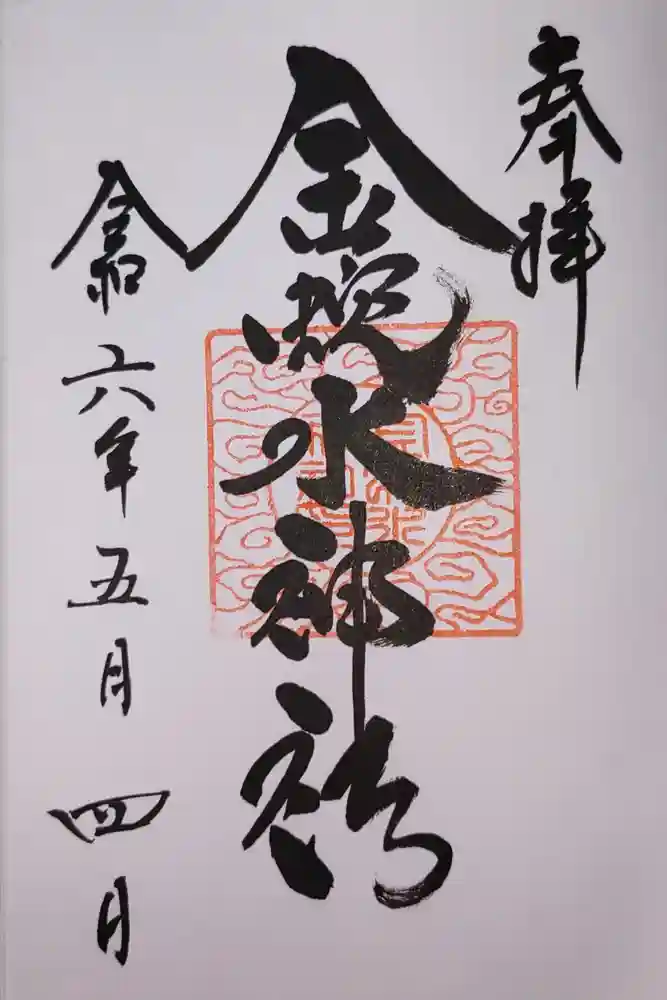 奉拝
金蛇水神社
令和六年五月四日